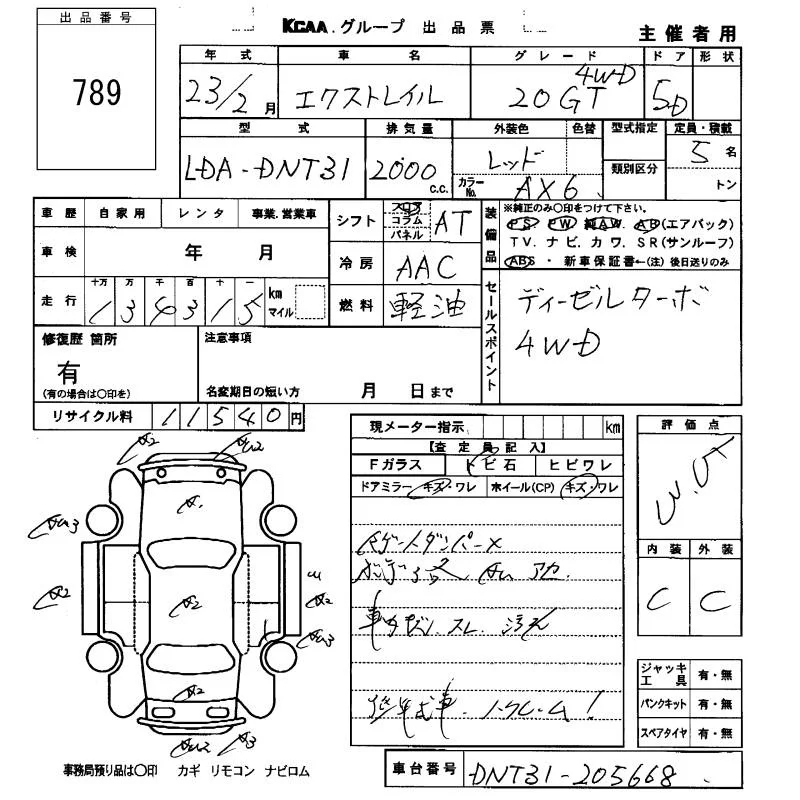 出品番号
789
KCAA.グループ 出品票
主催者用
年式 車名 グレード ドア 形状
23/2月 エクストレイル 20GT 4WD 5D
型式 排気量 外装色 色替 型式指定 定員・積載
LDA-DNT31 2000 c.c. レッド 5名
カラーNo. AX6 類別区分 トン
車歴 自家用 レンタ 事業.営業車
車検 年 月
走行 十万 万 千 百 十 一 km マイル
134315
シフト フロア コラム パネル AT
冷房 AAC
燃料 軽油
装備品
※純正のみ○印をつけて下さい。
PS PW 純AW. AB(エアバック)
TV. ナビ. カワ. SR(サンルーフ)
ABS・新車保証書←(注)後日送りのみ
セールスポイント
ディーゼルターボ
4WD
修復歴 箇所
有
(有の場合は○印を)
注意事項
名変期日の短い方 月 日まで
リサイクル料 11540円
現メーター指示 km
【査定員記入】
Fガラス トビ石 ヒビワレ
ドアミラー キズ・ワレ ホイール(CP) キズ・ワレ
Bゲートダンパー×
評価点
内装 外装
C C
ジャッキ工具 有・無
パンクキット 有・無
スペアタイヤ 有・無
A2
A1
A2
A2
A2
A2
A3
事務局預り品は○印 カギ リモコン ナビロム
車台番号 DNT31-205668